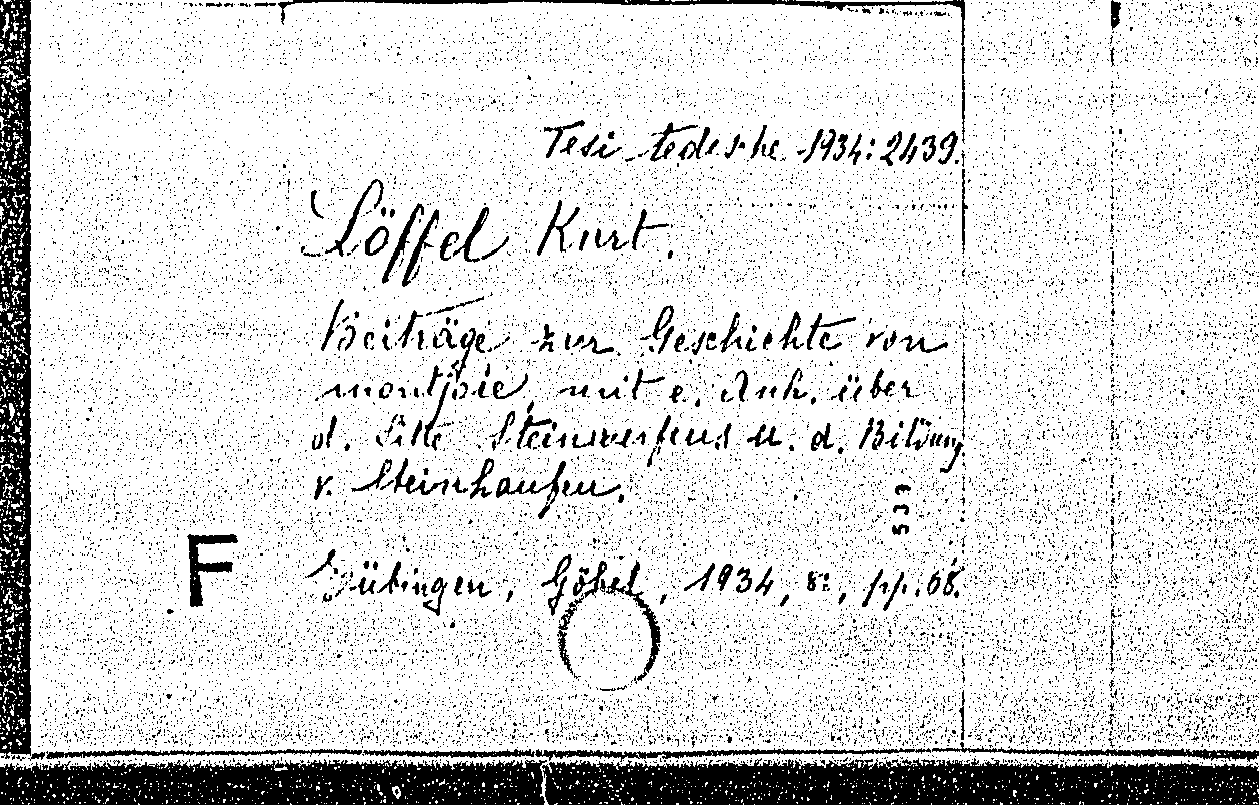 Tesi tedesche 1934: 2439.
Löffel Kurt.
Beiträge zur Geschichte von
montjoie, mit e. Anh. über
d. Sitte Steinwerfens u. d. Bildung
v. Steinhaufen.
539
F
Tübingen, Göbel, 1934, 8º, pp. 68.